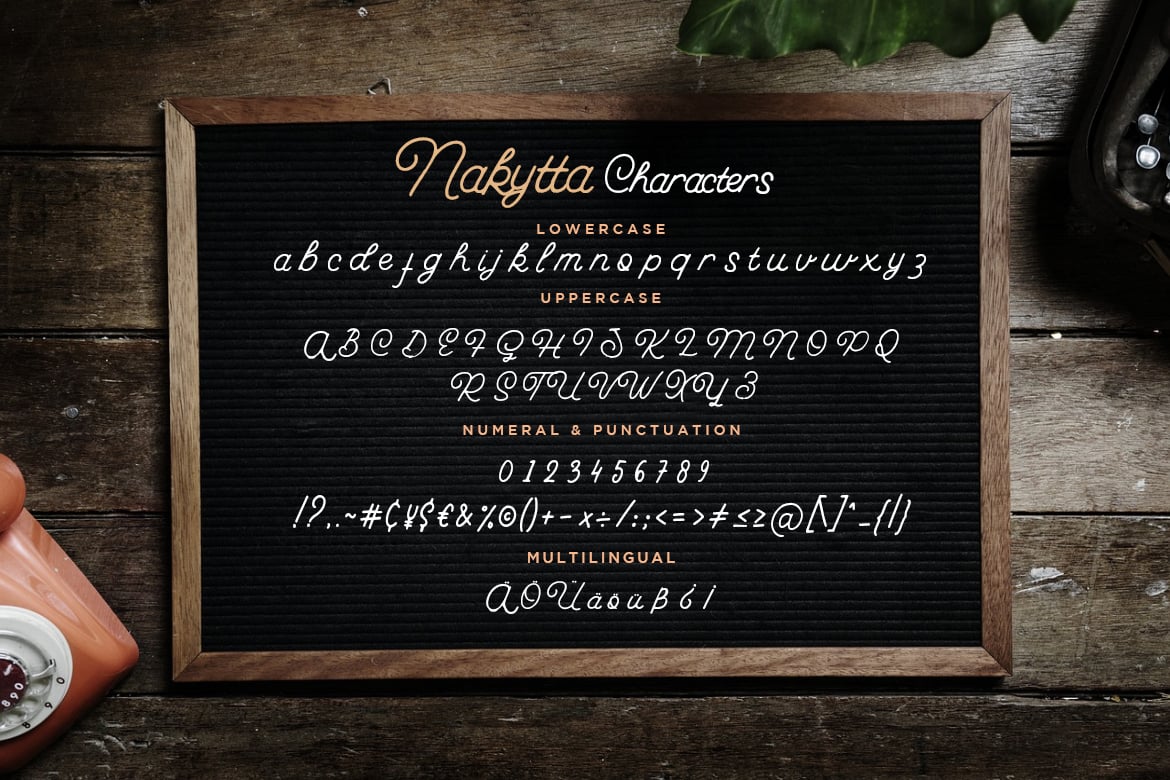 Nakytta Characters
LOWERCASE
a b c d e f g h i j k l m n o p q r s t u v w x y z
UPPERCASE
A B C D E F G H I J K L M N O P Q
R S T U V W X Y Z
NUMERAL & PUNCTUATION
0 1 2 3 4 5 6 7 8 9
!?,.~#₵¥$€&%©()+-×÷/:;<=>≠≤≥@[\]^_{/}
MULTILINGUAL
ÄÖÜäöüβ¿¡
068
8
9
0